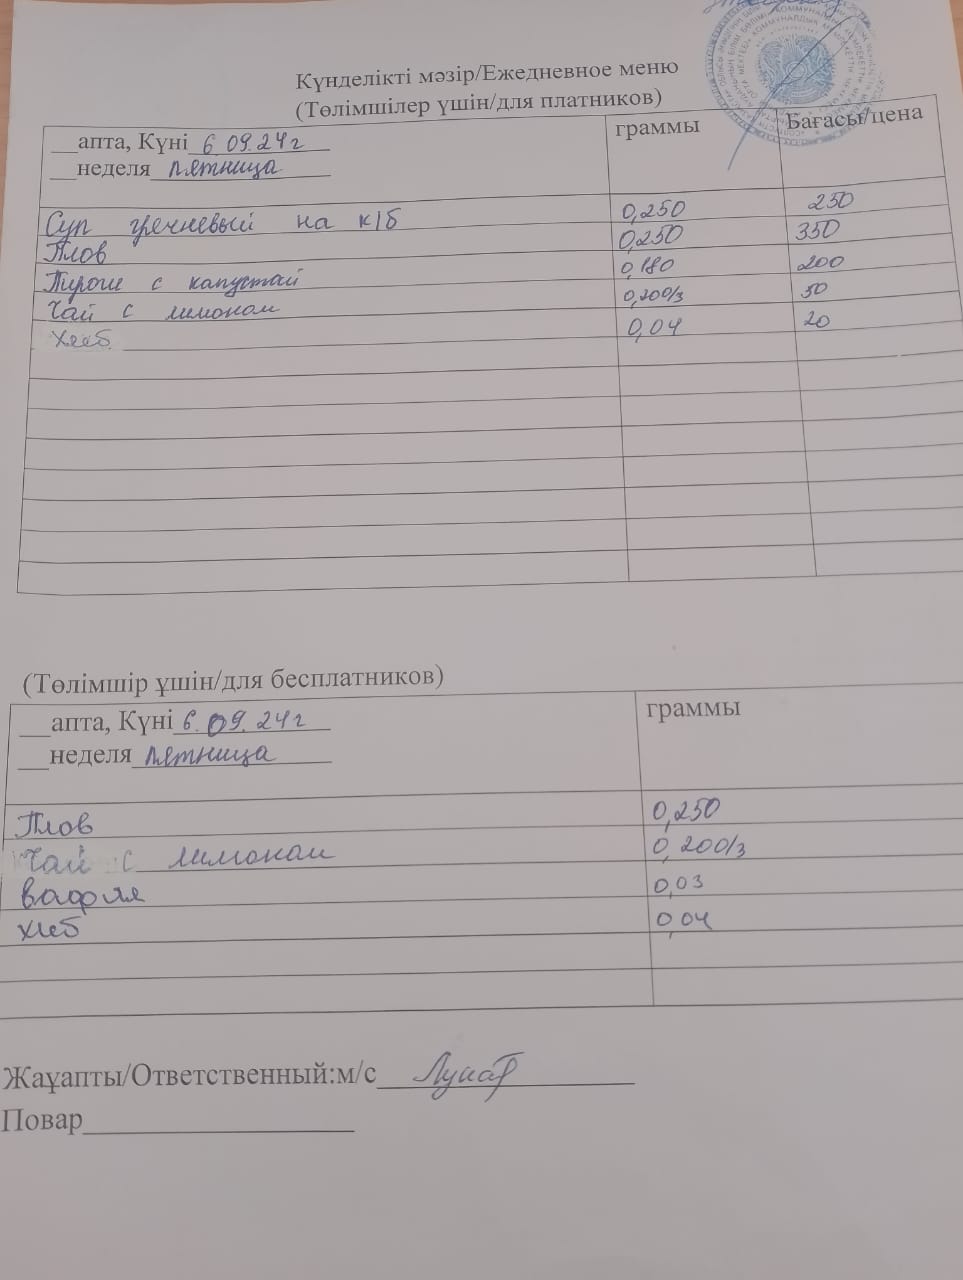 Күнделікті мәзір/Ежедневное меню
(Төлімшілер үшін/для платников)
___апта, Күні 6.09.24г граммы Бағасы/цена
___неделя пятница
Суп гречневый на к/б 0,250 250
Плов 0,250 350
Пироги с капустай 0,180 200
Чай с лимоном 0,200/3 50
Хлеб 0,04 20
(Төлімшір ұшін/для бесплатников)
___апта, Күні 6.09.24г граммы
___неделя пятница
Плов 0,250
Чай с лимоном 0,200/3
вафля 0,03
хлеб 0,04
Жаұапты/Ответственный:м/с
Повар